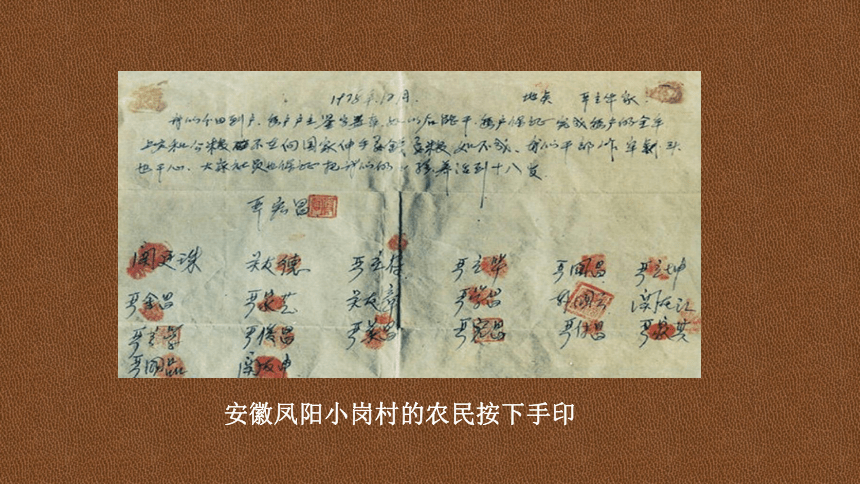 1978年12月 地点 严立华家
我们分田到户，每户户主签字盖章，如以后能干，每户保证完成每户的全年
上交和公粮，不在向国家伸手要钱要粮，如不成，我们干部作牢刹头
也干心，大家社员也保证把我们的小孩养活到十八岁。
严宏昌
关廷珠 关友德 严立符 严立华 严国昌 严立坤
严金昌 严家芝 关友章 严学昌 韩国云 关友江
严立学 严俊昌 严美昌 严宏昌 严付昌 严家其
严国品 关友申
安徽凤阳小岗村的农民按下手印